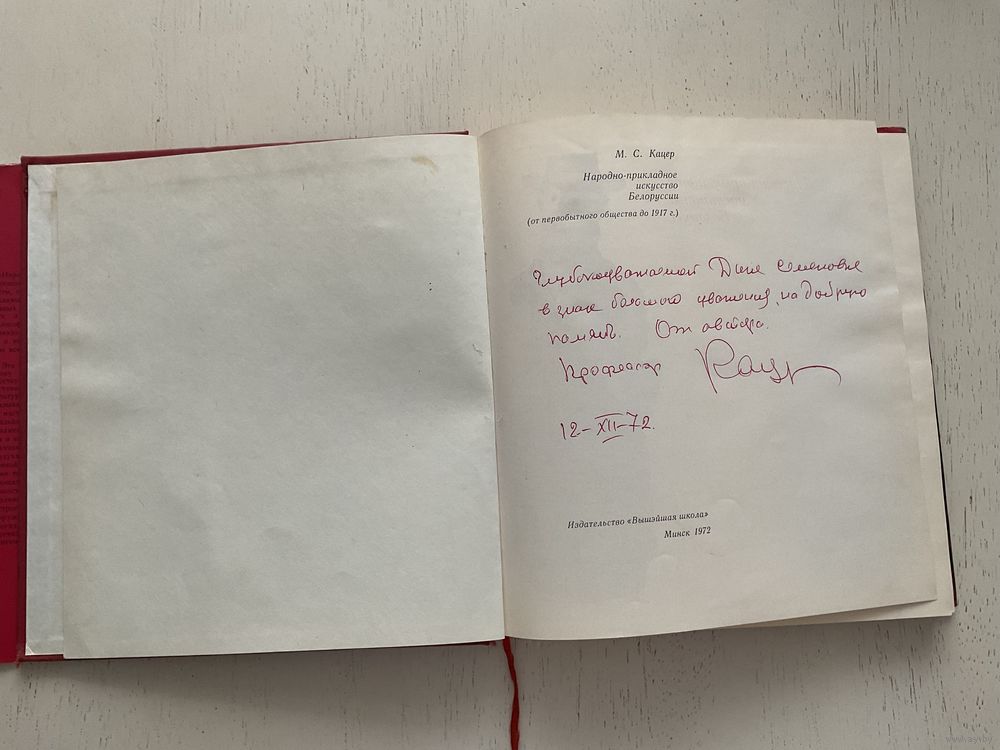 М. С. Кацер
Народно-прикладное
искусство
Белоруссии
(от первобытного общества до 1917 г.)
Глубокоуважаемой Дине Семеновне
в знак большого уважения, на добрую
память. От автора.
Профессор Кацер
12-XII-72.
Издательство «Вышэйшая школа»
Минск 1972